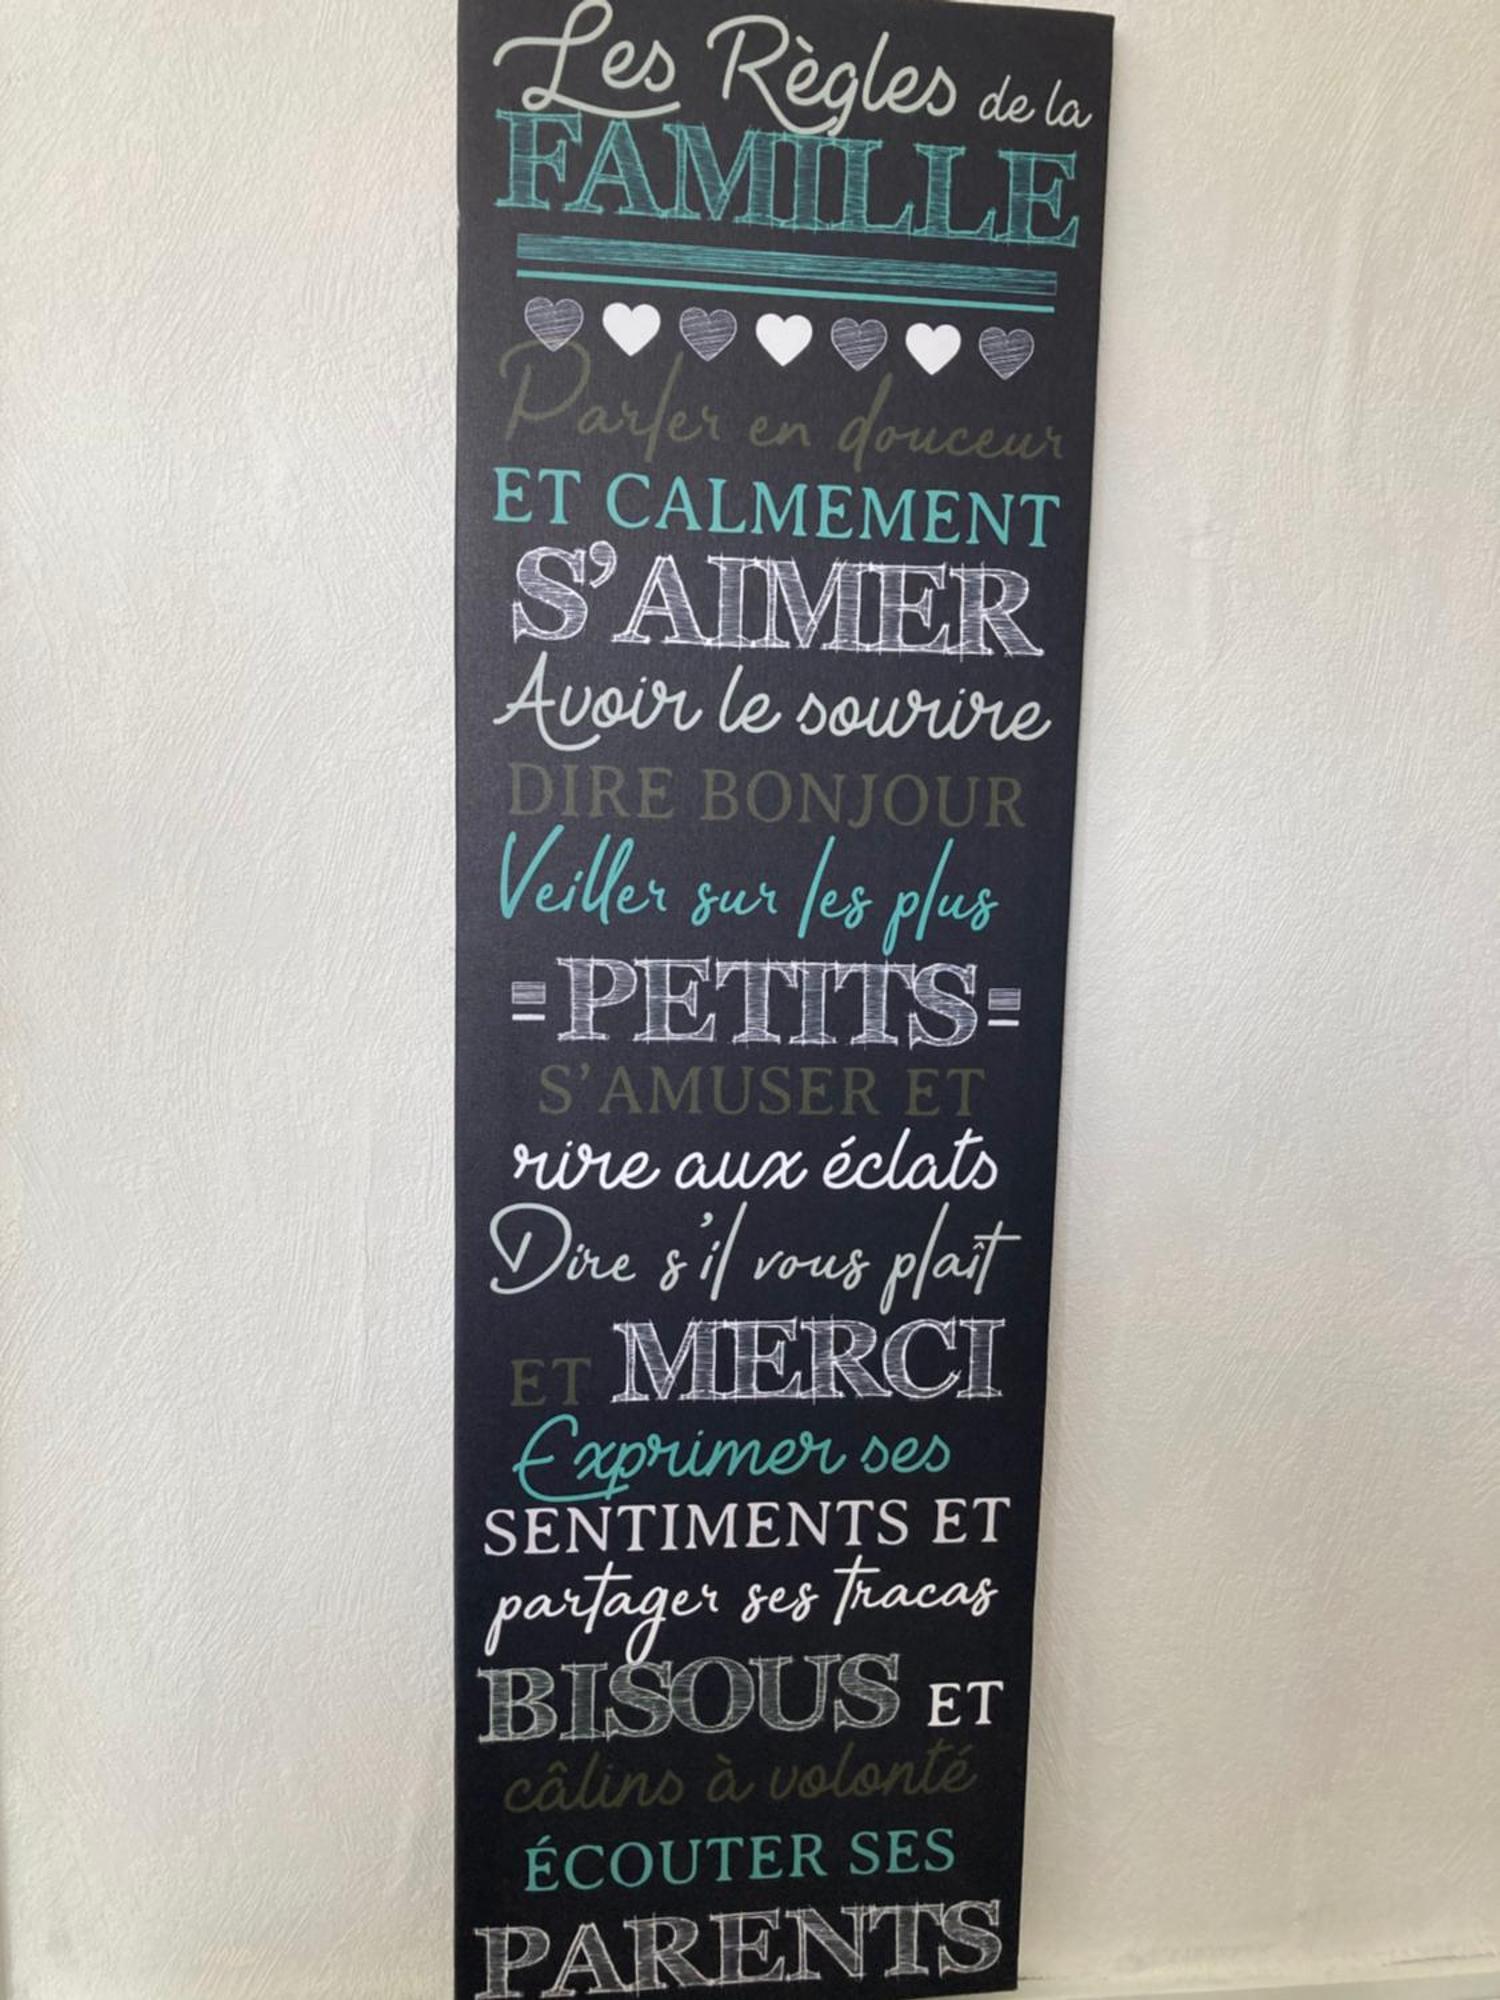 Les Règles de la
FAMILLE
Parler en douceur
ET CALMEMENT
S'AIMER
Avoir le sourire
DIRE BONJOUR
Veiller sur les plus
PETITS
S'AMUSER ET
rire aux éclats
Dire s'il vous plaît
ET MERCI
Exprimer ses
SENTIMENTS ET
partager ses tracas
BISOUS ET
câlins à volonté
ÉCOUTER SES
PARENTS